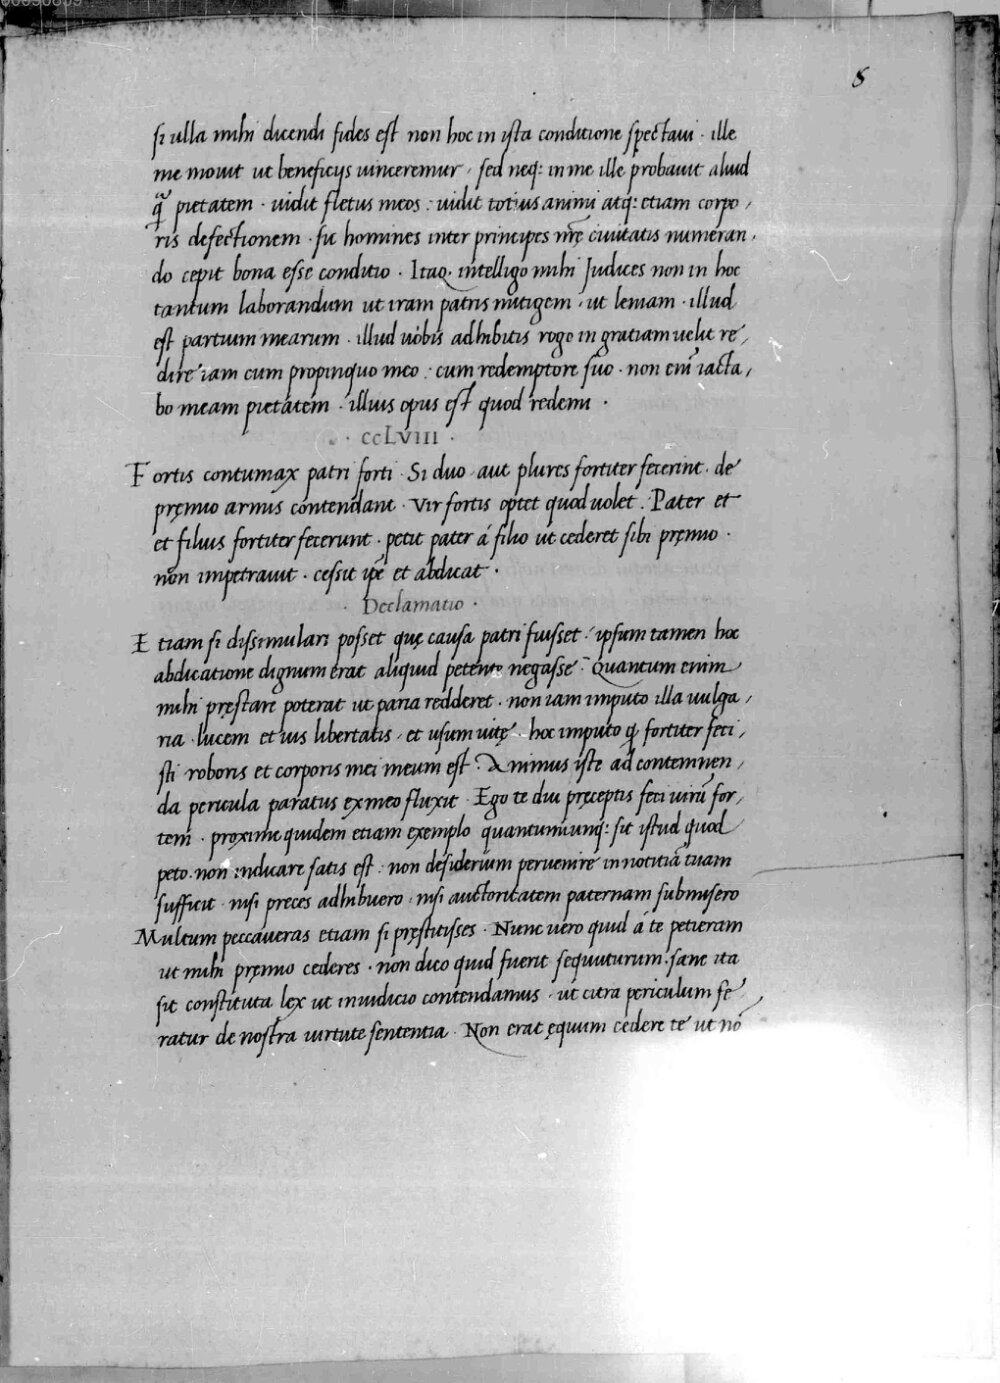 8
si ulla mihi dicendi fides est non hoc in ista conditione spectaui · ille
me mouit ut beneficijs uinceremur · sed neq: in me ille probauit aliud
q̃ pietatem · uidit fletus meos : uidit totius animi atq: etiam corpo,
ris defectionem · sic homines inter principes nr̃ę ciuitatis numeran,
do cepit bona esse conditio · Itaq. intelligo mihi Judices non in hoc
tantum laborandum ut iram patris mitigem · ut leniam · illud
est partium mearum · illud uobis adhibitis rogo in gratiam uelit re,
dire iam cum propinquo meo : cum redemptore suo · non eni͂ iacta,
bo meam pietatem · illius opus est quod redemi ·
· ccLVIII ·
Fortis contumax patri forti · Si duo aut plures fortiter fecerint · de
pręmio armis contendant · Vir fortis optet quod uolet . Pater et
et filius fortiter fecerunt · petit pater á filio ut cederet sibi pręmio ·
non impetrauit · cessit ip̃e et abdicat ·
· Declamatio ·
Etiam si dissimulari posset quę causa patri fuisset · ipsum tamen hoc
abdicatione dignum erat aliquid petenti negasse · Quantum enim
mihi pręstare poterat ut paria redderet · non iam imputo illa uulga,
ria · lucem et ius libertatis · et usum uitę · hoc imputo q̃ fortiter feci,
sti roboris et corporis mei meum est · Animus iste ad contemnen,
da pericula paratus ex meo fluxit · Ego te diu pręceptis feci uirũ for,
tem · proxime quidem etiam exemplo quantumcunq: sit istud quod
peto · non indicare satis est · non desiderium peruenire in notitiã tuam
sufficit · nisi preces adhibuero · nisi auctoritatem paternam submisero
Multum peccaueras etiam si pręstitisses · Nunc uero quid á te petieram
ut mihi pręmio cederes · non dico quid fuerit sequuturum · sane ita
sit constituta lex ut in iudicio contendamus · ut citra periculum fe
ratur de nostra uirtute sententia · Non erat ęquum cedere te ut nõ